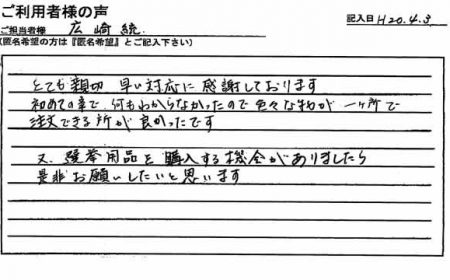 ご利用者様の声
記入日 H20.4.3
ご担当者様 広崎 統
(匿名希望の方は『匿名希望』とご記入下さい)
とても親切 早い対応に感謝しております
初めての事で、何もわからなかったので色々な物が一ヶ所で
注文できる所が良かったです
又、選挙用品を購入する機会がありましたら
是非お願いしたいと思います